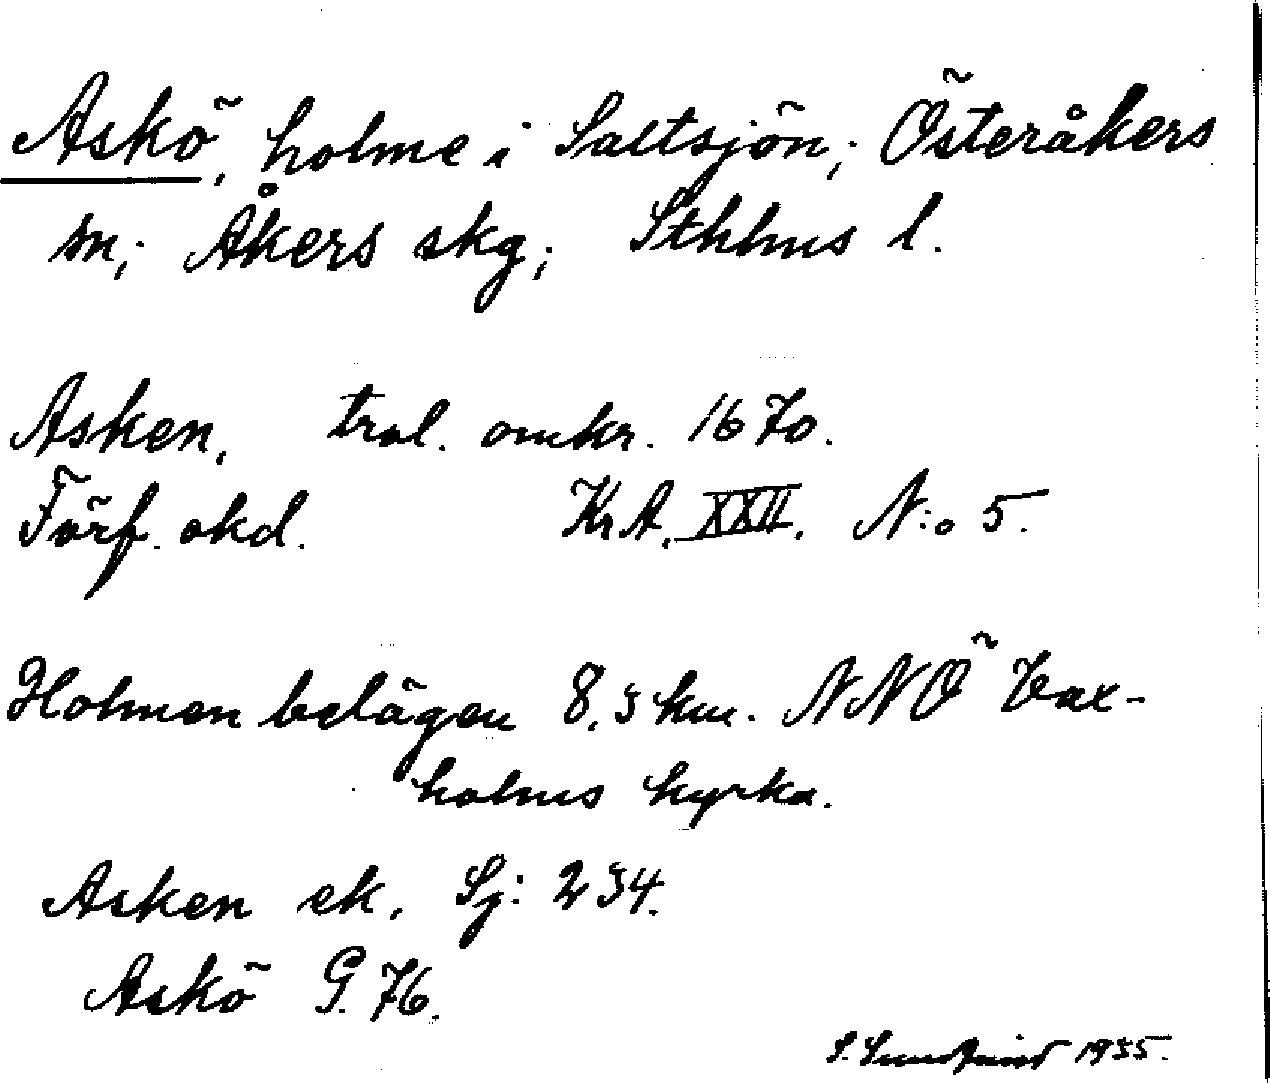 Askö, holme i Saltsjön; Österåkers
sn; Åkers skg; Sthlms l.
Asken, trol. omkr. 1670.
Förf. okd. KrA. XXII. N:o 5.
Holmen belägen 8,5 km. NNÖ Vax-
holms kyrka.
Asken ek. Sj: 254.
Askö G. 76.
S. Sundqvist 1935.